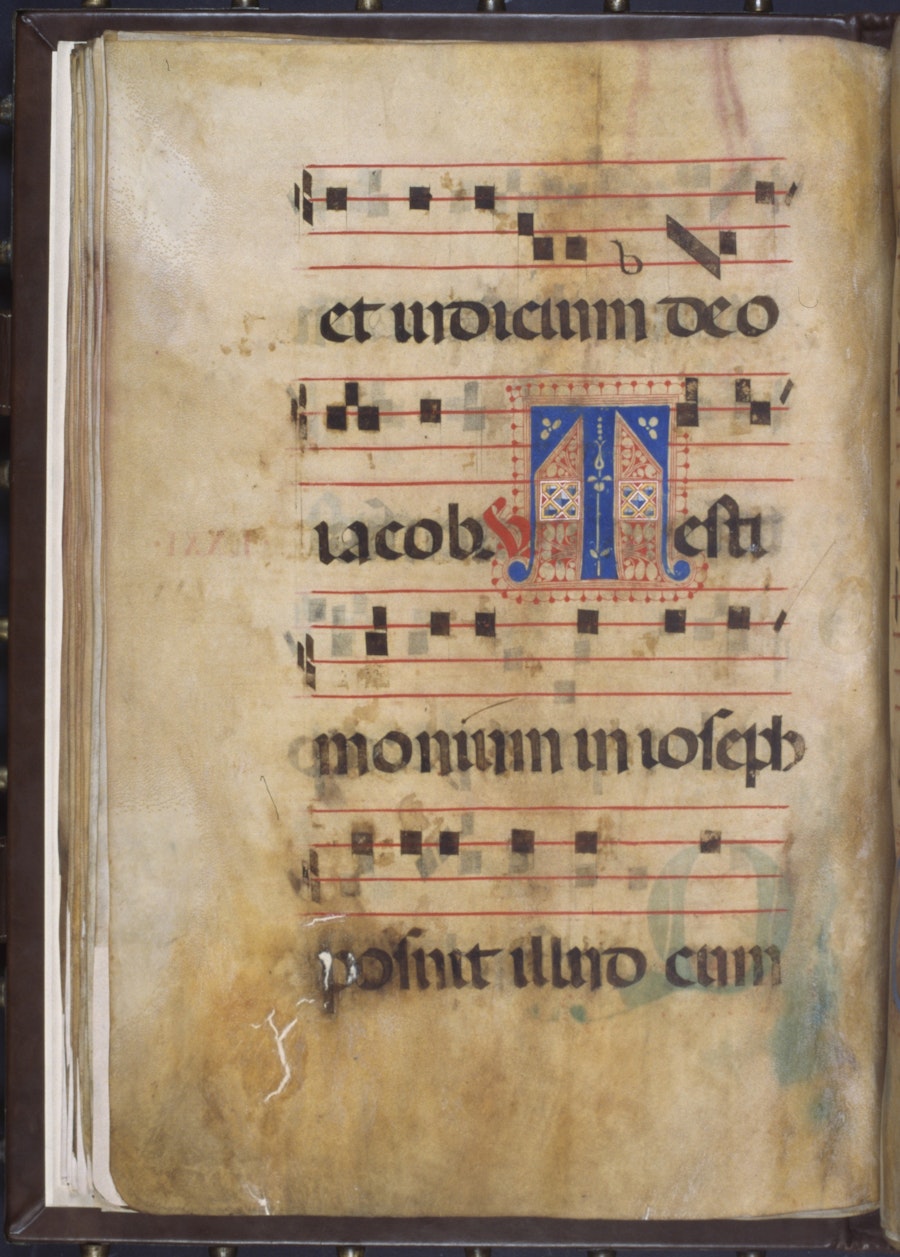 et iudicium deo
iacob. V Testi
monium in ioseph
posuit illud cum